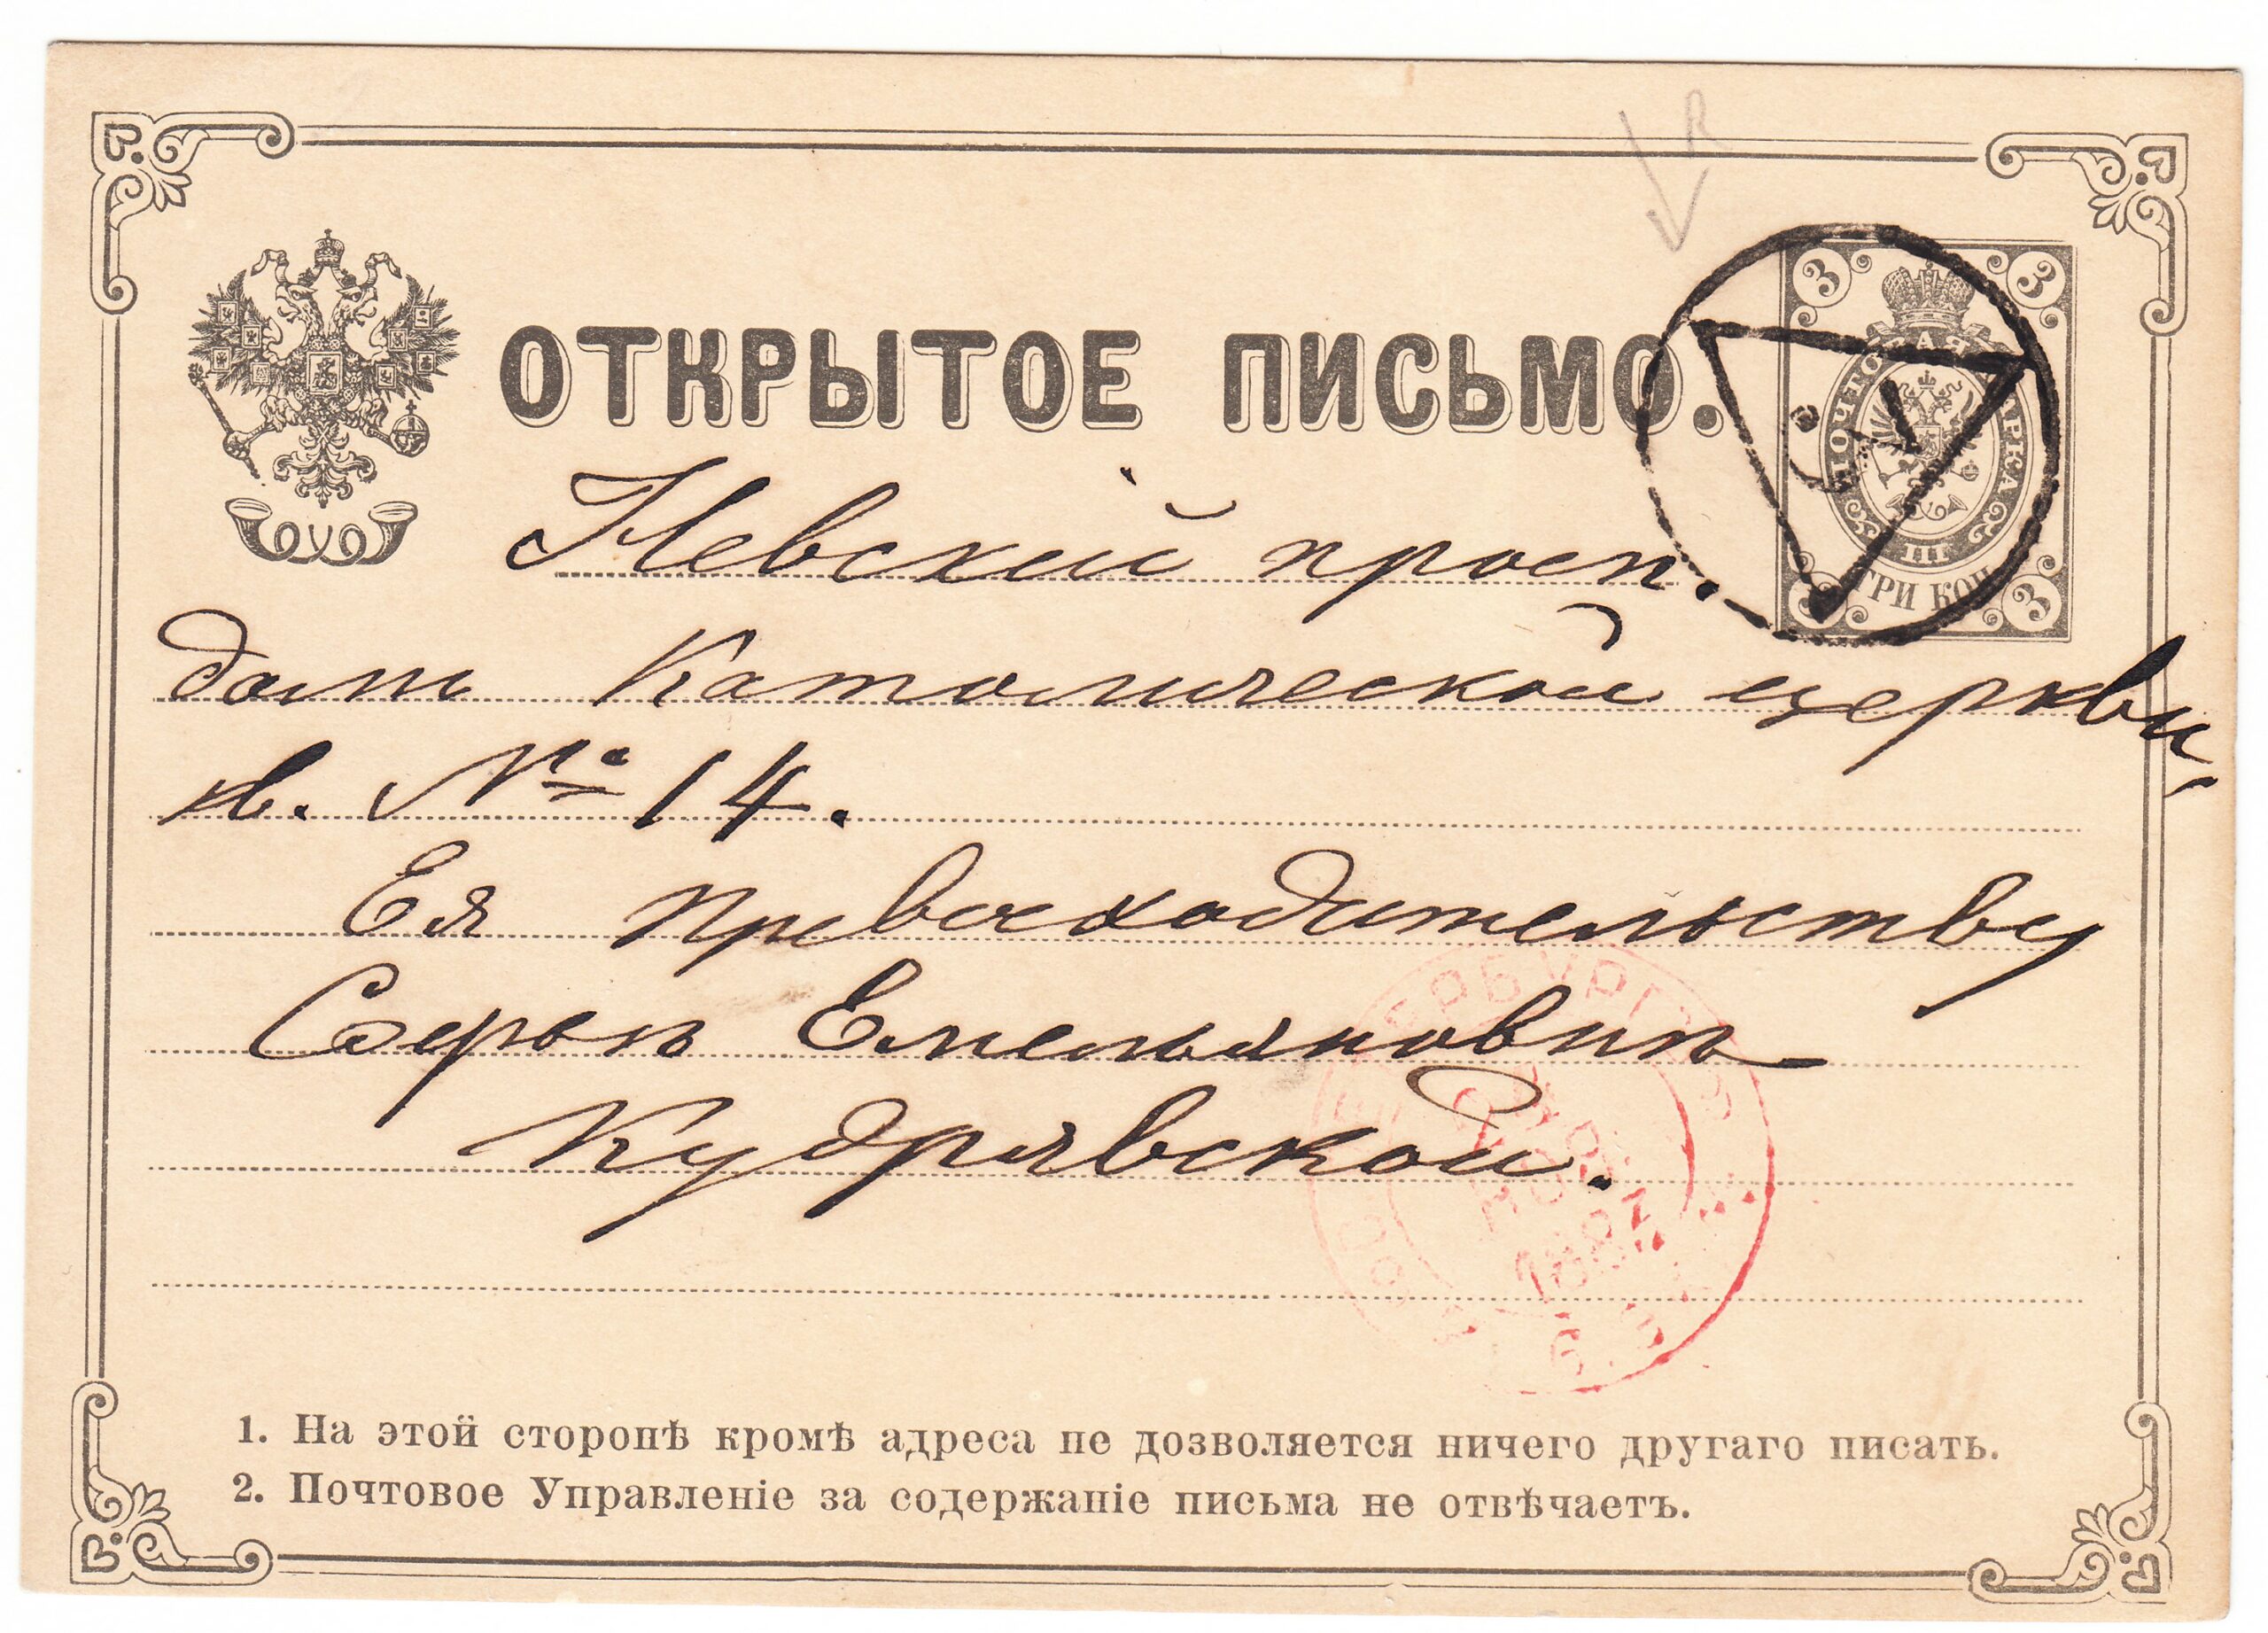 ОТКРЫТОЕ ПИСЬМО.
3 3
ПОЧТОВАЯ МАРКА
ТРИ КОП.
3 3
R
Невскій просп.
домъ Католической церкви,
кв. № 14.
Ея Превосходительству
Софьѣ Емельяновнѣ
Кудрявской.
1. На этой сторонѣ кромѣ адреса не дозволяется ничего другаго писать.
2. Почтовое Управленіе за содержаніе письма не отвѣчаетъ.